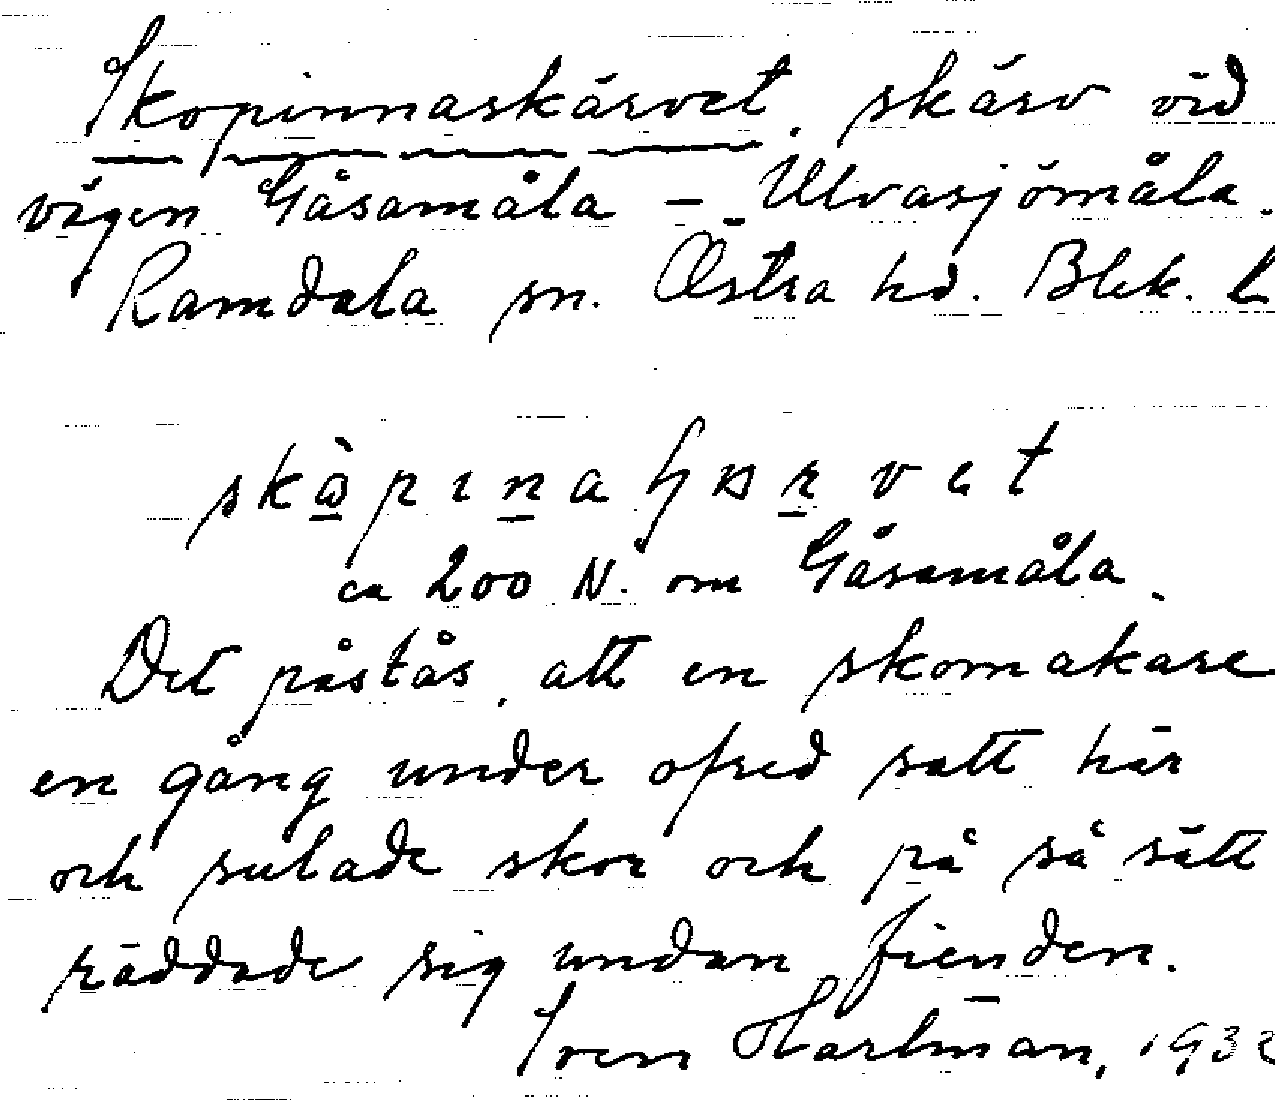 Skopinnaskärvet, skärv vid
vägen Gåsamåla - Ulvasjömåla.
Ramdala sn. Östra hd. Blek. l
ca 200 N. om Gåsamåla.
Det påstås, att en skomakare
en gång under ofred satt här
och sulade skor och på så sätt
räddade sig undan fienden.
Sven Hartman, 1932